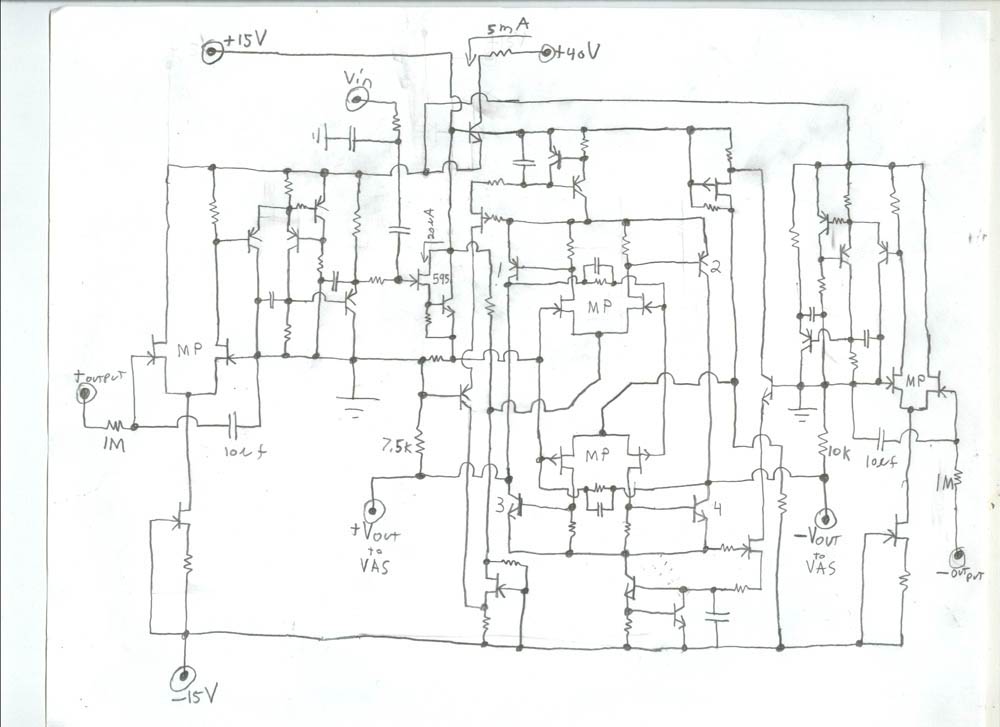 5mA
+15V
+40V
Vin
20uA
595
1
2
MP
MP
MP
+OUTPUT
1M
10uf
7.5K
MP
10K
10uf
1M
3
4
+VOUT
to
VAS
-VOUT
to
VAS
-OUTPUT
-15V